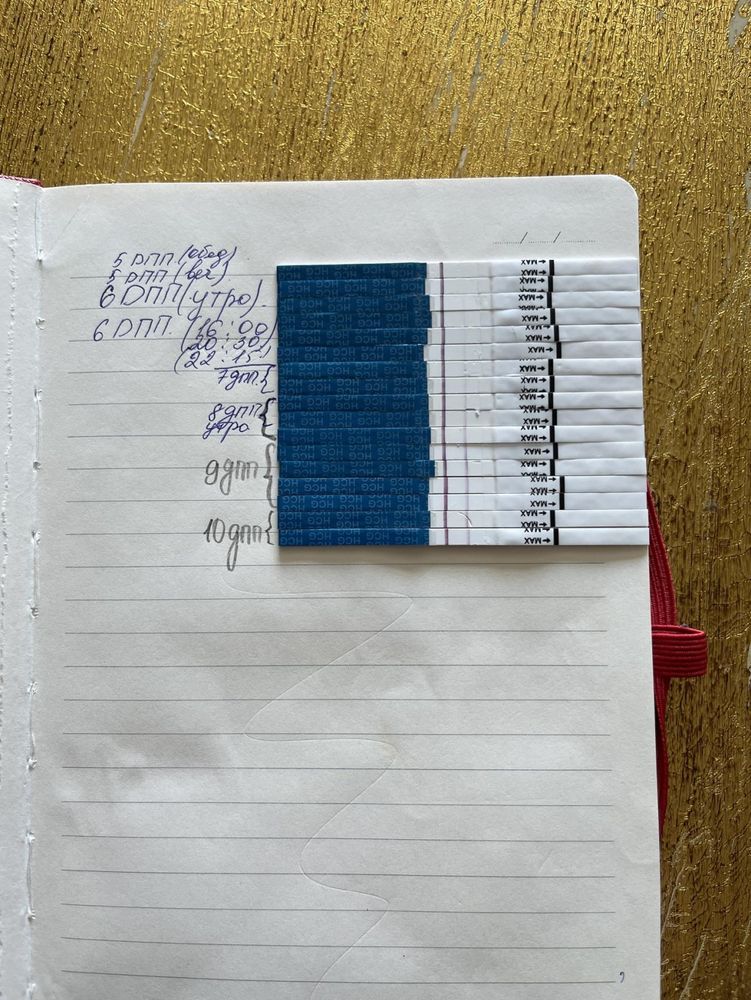 5 ДПП (обед)
5 ДПП (веч)
6 ДПП (утро)
6 ДПП. (16:00)
(20:30)
(22:15)
7дпп.
8дпп
утро
9дпп
10дпп
HCG
MAX